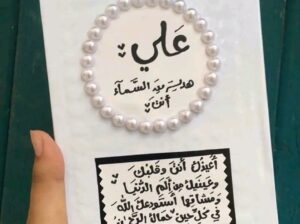 علي
هدية من السماء
أنت
أعيذك أنت وقلبك
وعينيك من ألم الدنيا
ومشاقها أستودعك الله
في كل حين حماك الرحمن